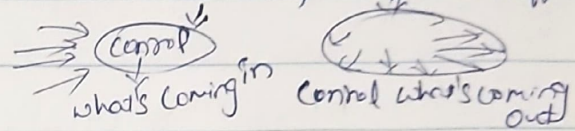 Conrol
what's coming in
Conrol what's coming
out